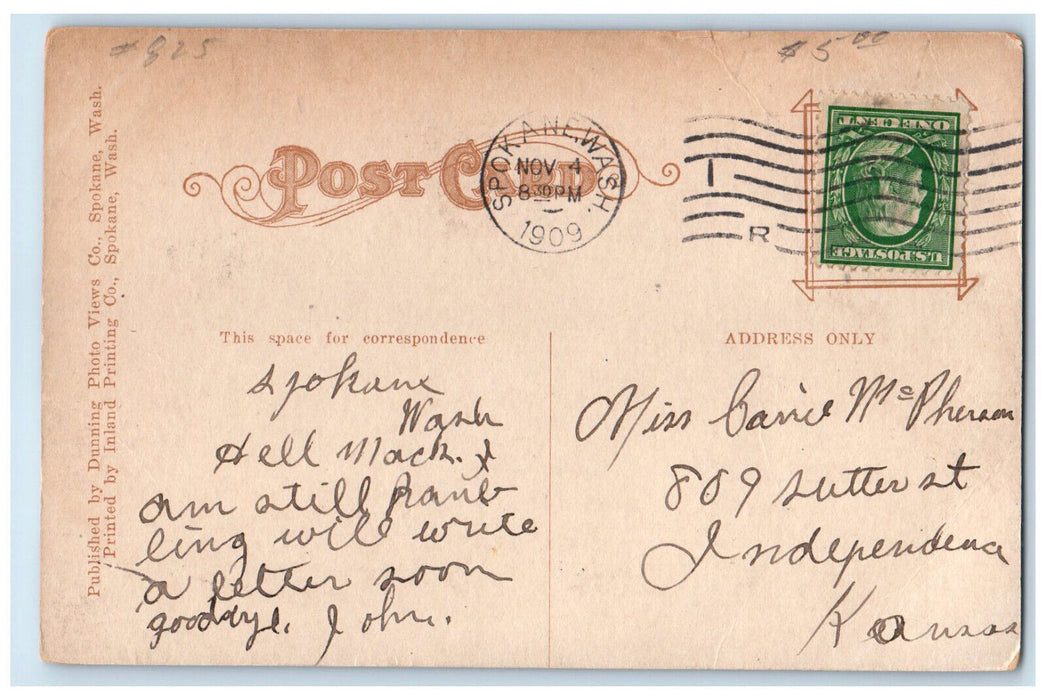 #825
$5.00
Published by Dunning Photo Views Co., Spokane, Wash.
Printed by Inland Printing Co., Spokane, Wash.
POST CARD
SPOKANE, WASH.
NOV 4
8 30 PM
1909
1
R
U.S. POSTAGE
ONE CENT
This space for correspondence
ADDRESS ONLY
Spokane
Wash
Hell Mack. I
am still ramb
ling will write
a letter soon
goodbye. John.
Miss Carrie McPherson
809 Sutter st
Independence
Kansas